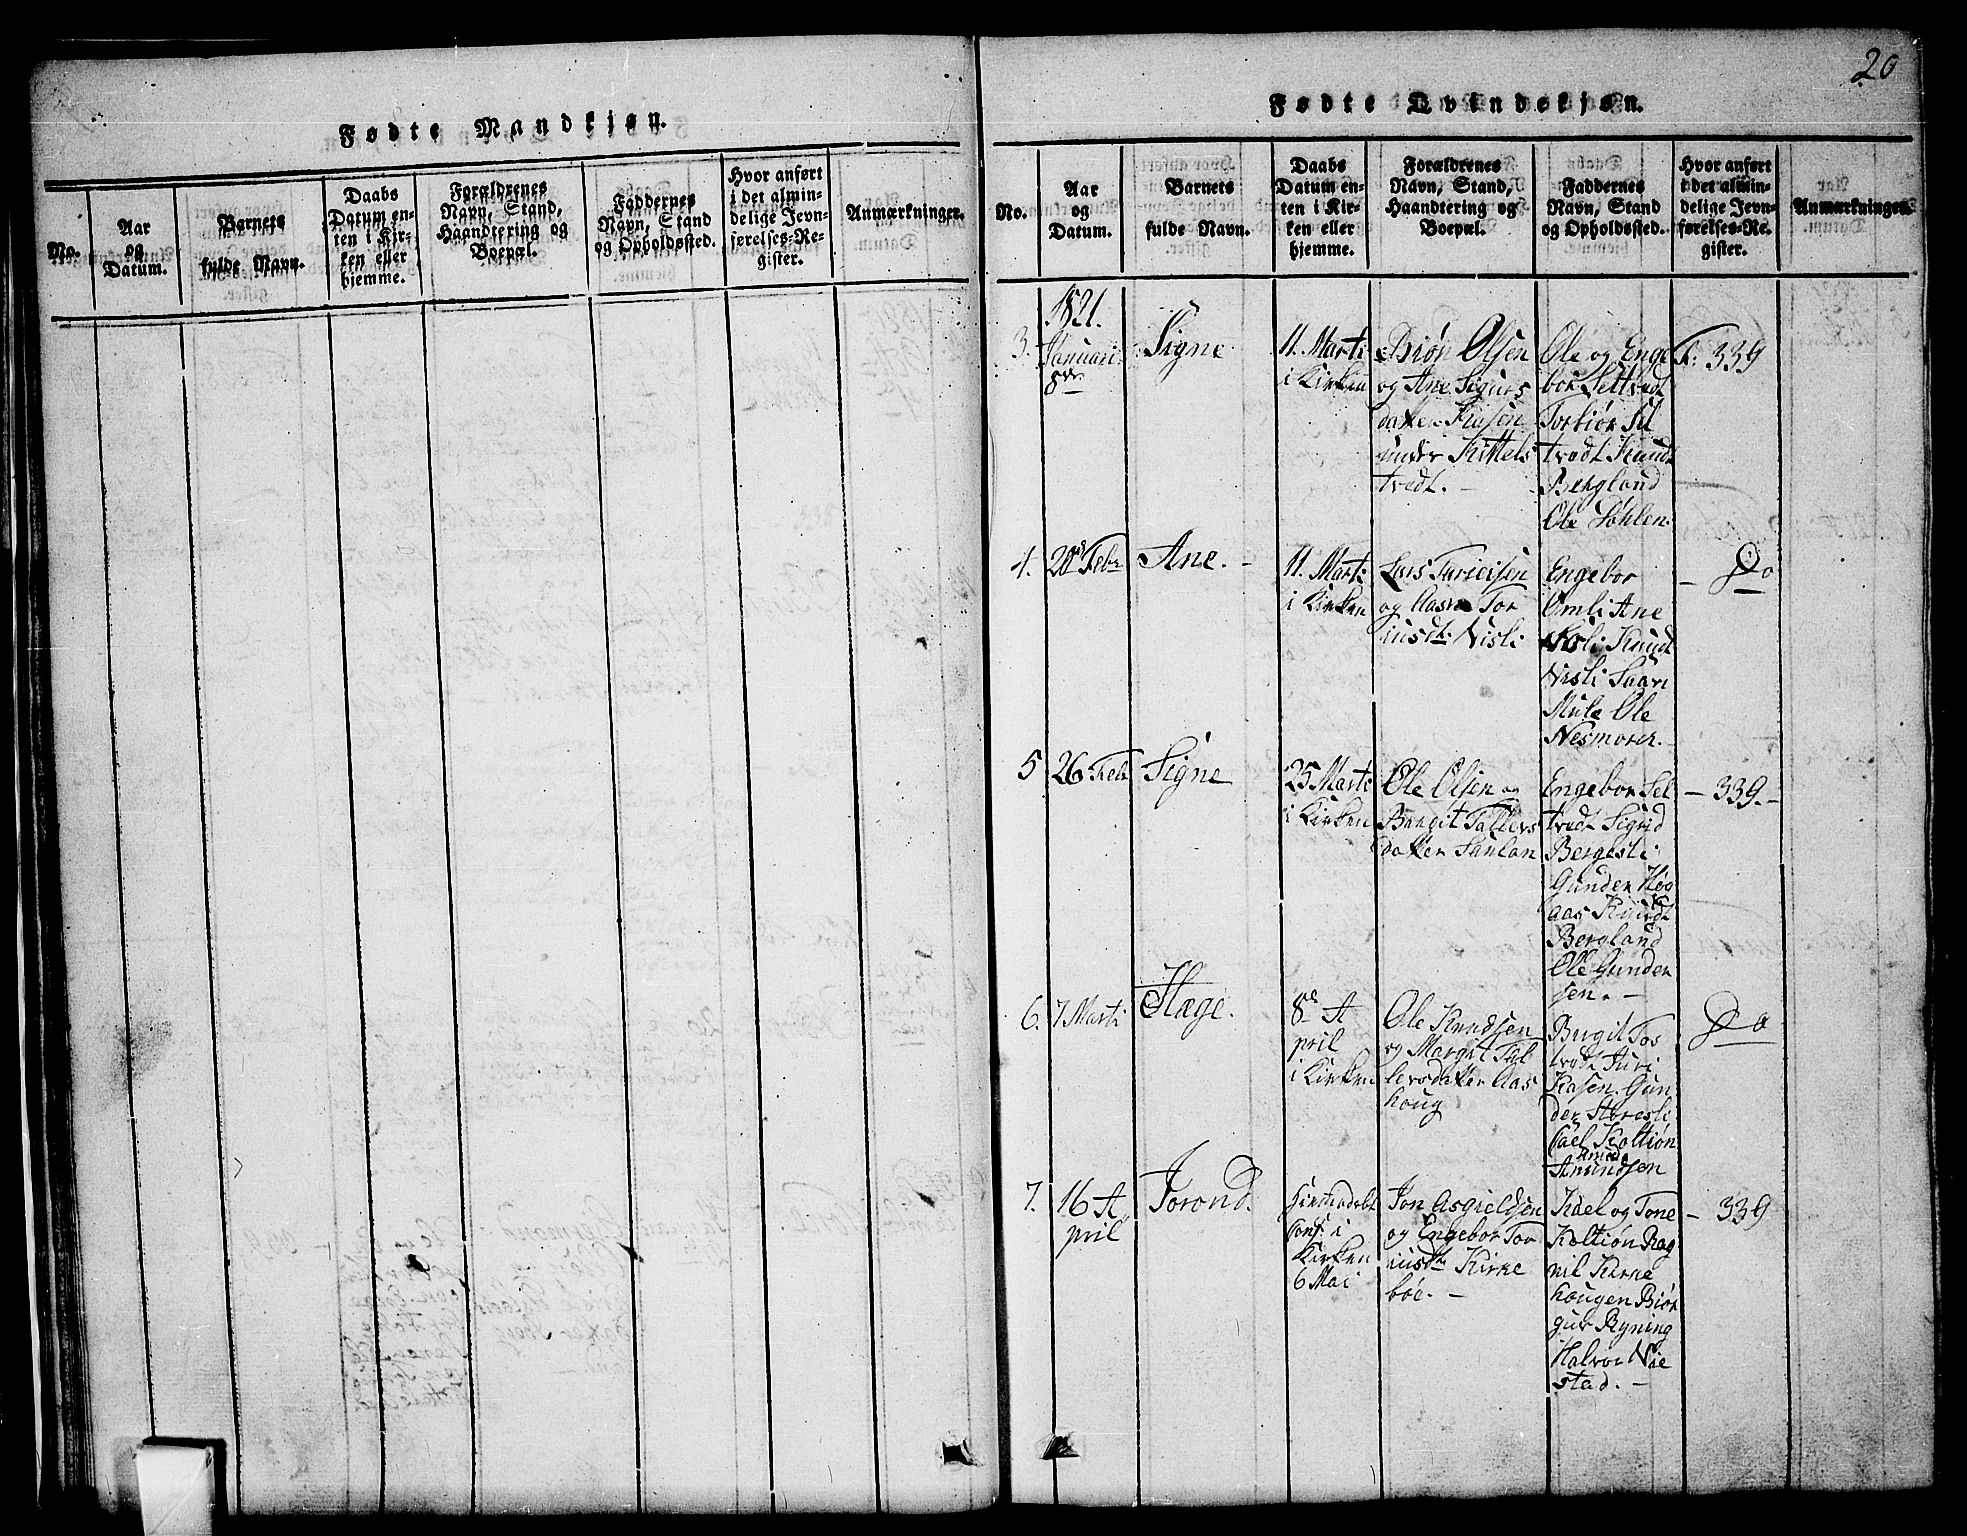 20
Fødte Mandkjøn.
No.
Aar
og
Datum.
Barnets
fulde Navn.
Daabs
Datum en-
ten i Kir-
ken eller
hjemme.
Forældrenes
Navn, Stand,
Haandtering og
Boepæl.
Faddernes
Navn, Stand
og Opholdssted.
Hvor anført
i det almin-
delige Jevn-
førelses-Re-
gister.
Anmærkninger.
Fødte Qvindekjøn.
No.
Aar
og
Datum.
Barnets
fulde Navn.
Daabs
Datum en-
ten i Kir-
ken eller
hjemme.
Forældrenes
Navn, Stand,
Haandtering og
Boepæl.
Faddernes
Navn, Stand
og Opholdssted.
Hvor anført
i det almin-
delige Jevn-
førelses-Re-
gister.
Anmærkninger.
3.
1821.
Januari
8de
Signe
11. Marti
i Kirken
Biøn Olsen
og Ane Sigurs
datter
under Kittels
tvedt. -
Ole og Enge
bor Seltvedt
Torbiør Sel
tvedt Knudt
Bergland
Ole
F: 339
4.
20de Febr
Ane. -
11. Marti
i Kirken
Lars
og Aasne Tor
iusdt: Nisli
Engebor
Omli Ane
Nisli Knudt
Nisli
Mule Ole
- Do
5
26 Feb
Signe
25 Marti
i Kirken
Ole Olsen og
Bergit Tallevs
datter
Engebor Sel
tvedt Sigrid
Bergesli
Gunder Høg
aas Knudt
Bergland
Ole Gunder
sen. -
- 339. -
6.
7 Marti
Hæge.
8de A
pril
i Kirken
Ole Knudsen
og Margit Tal
levsdatter Aas
houg
Birgit
Gun
der
Amundsen
Do
7.
16 A
pril
Jorond.
Hiemmedøbt
Conf: i
Kirken
6 Mai
Jon Asgieldsen
og Engebor Tor
iusdtr Kirke
bøe. -
Kiel og Tone
Koltiøn Rag
nil Kirke
hougen Biør
gur Ryning
Halvor
stad. -
- 339